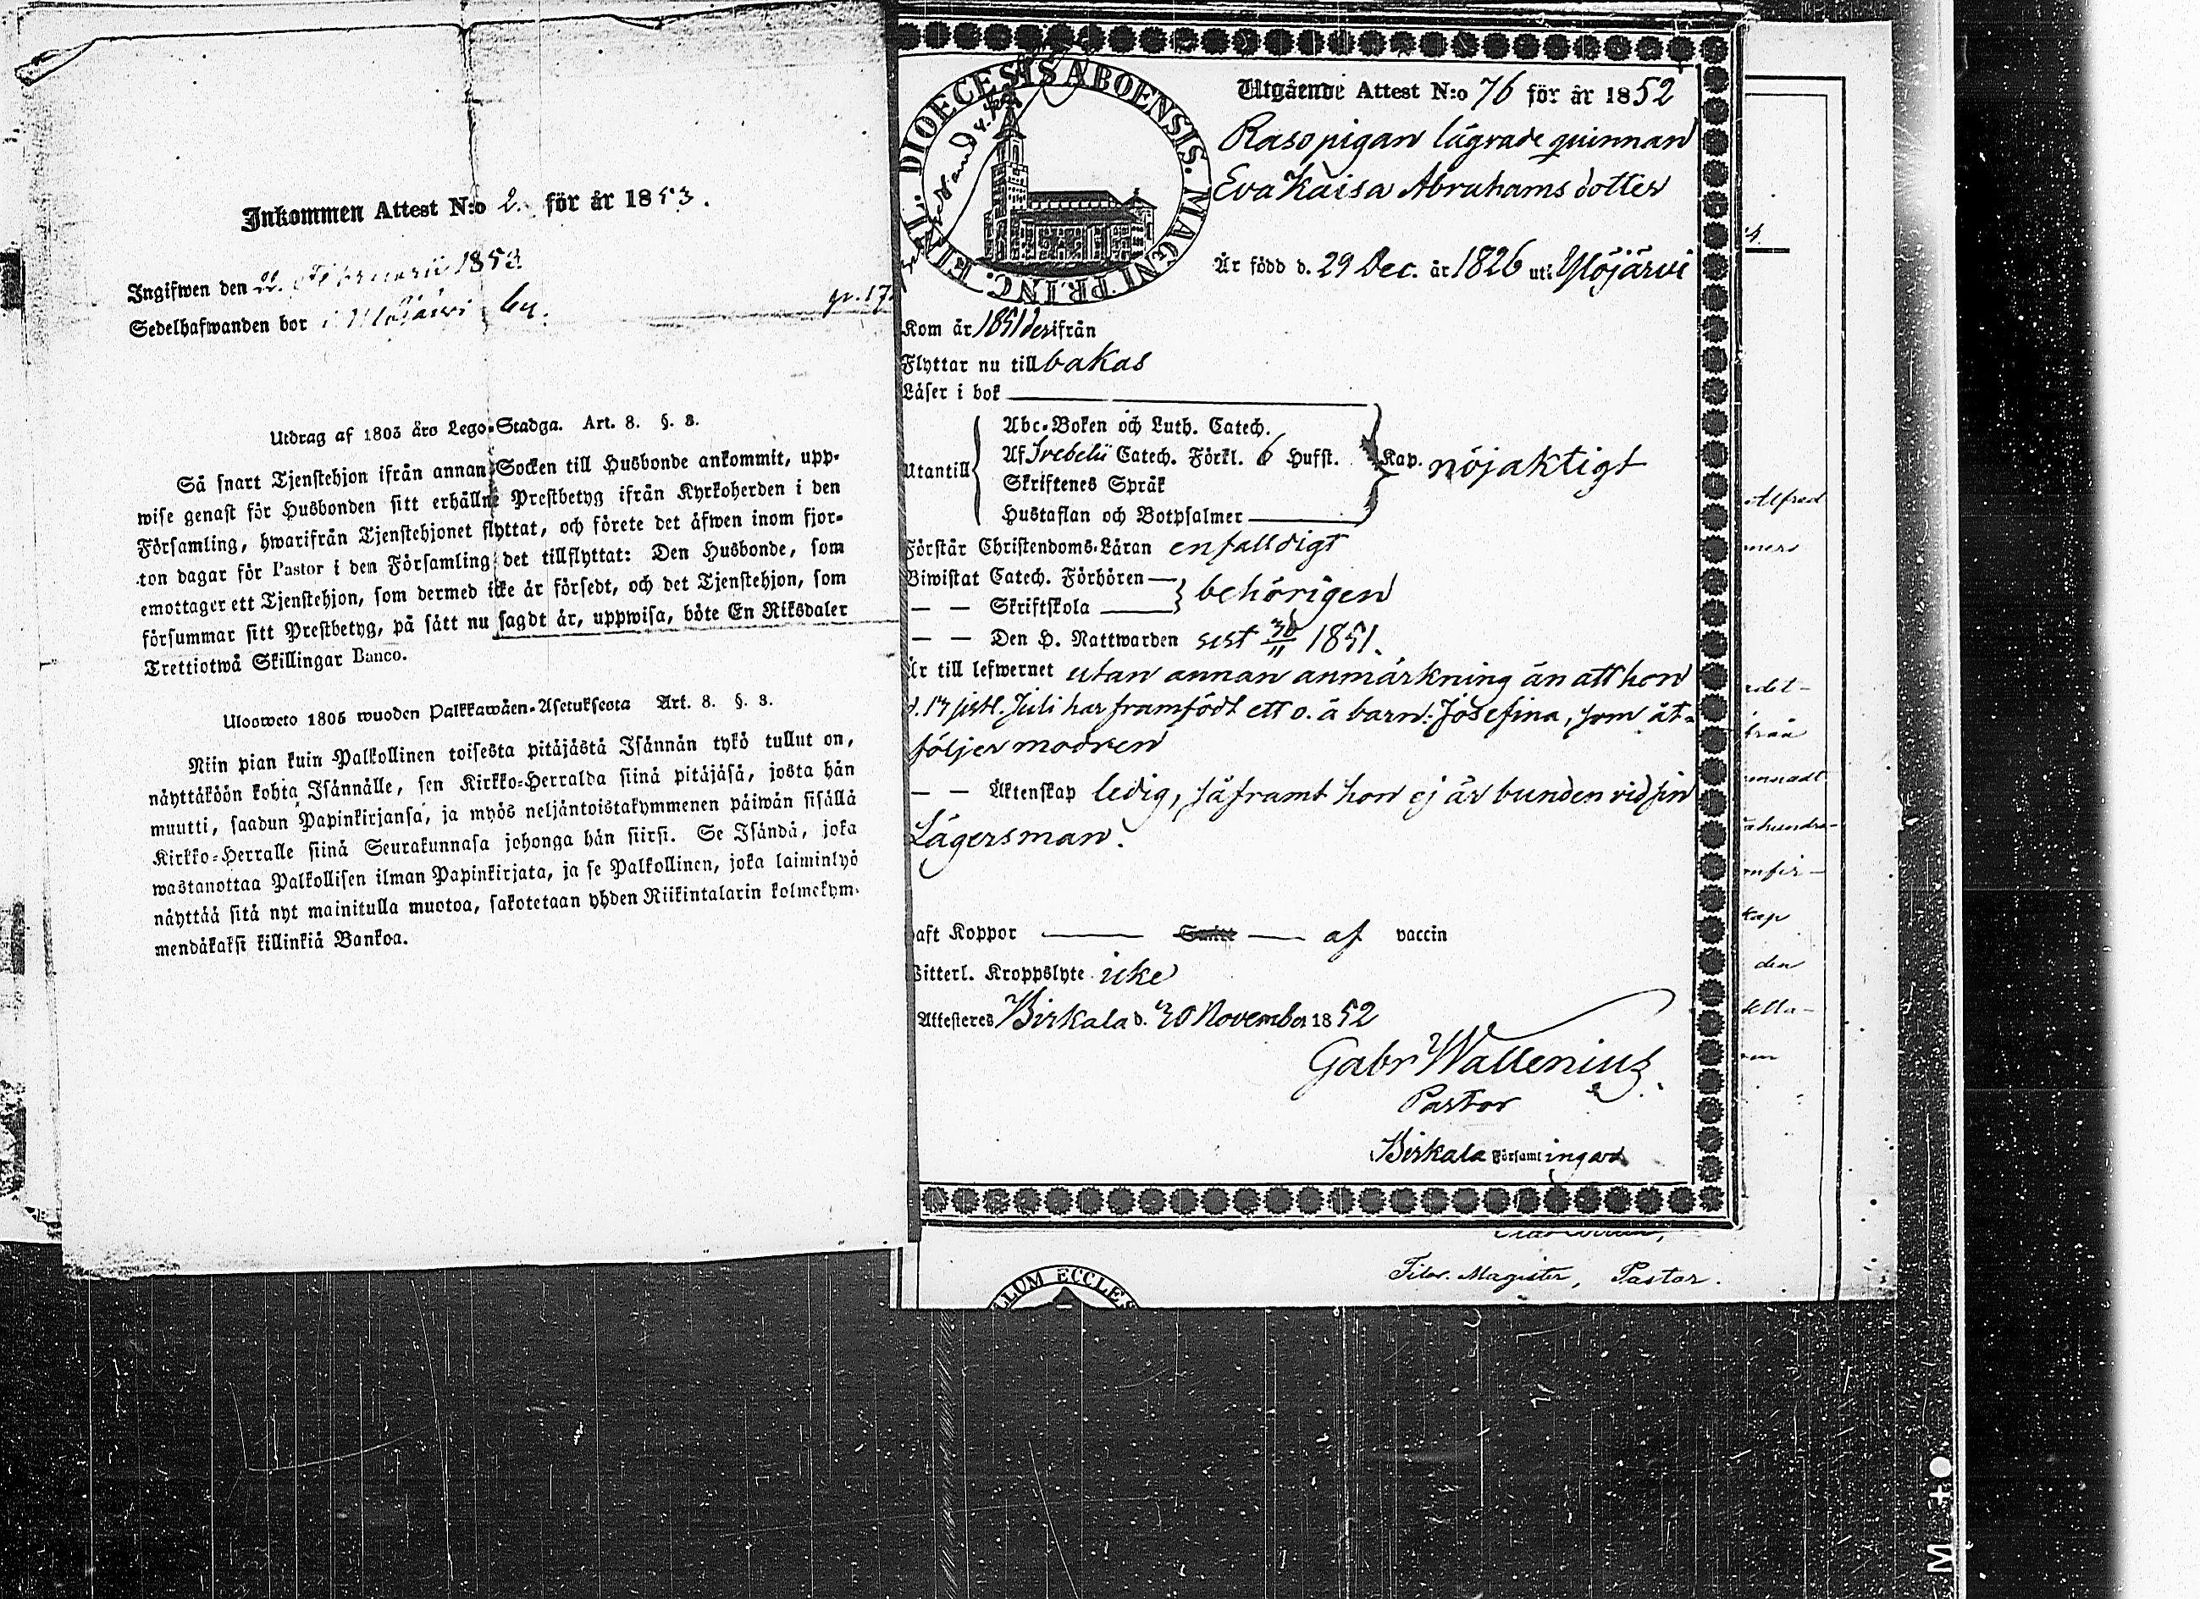 Inkommen Attest N:o 2. för år 1853.
Ingifwen den 22. Februarii 1853
Sedelhafwanden bor i Ylöjärvi by.
Utdrag af 1805 års Lego-Stadga. Art. 8. §. 3.
Så snart Tjenstehjon ifrån annan Socken till Husbonde ankommit, upp-
wise genast för Husbonden sitt erhållne Prestbetyg ifrån Kyrkoherden i den
Församling, hwarifrån Tjenstehjonet flyttat, och förete det äfwen inom fjor-
ton dagar för Pastor i den Församling det tillflyttat: Den Husbonde, som
emottager ett Tjenstehjon, som dermed icke är försedt, och det Tjenstehjon, som
försummar sitt Prestbetyg, på sätt nu sagdt är, uppwisa, böte En Riksdaler
Trettiotwå Skillingar Banco.
Ulosweto 1805 wuoden Palkkawäen-Asetuksesta Art. 8. §. 3.
Niin pian kuin Palkollinen toisesta pitäjästä Isännän tykö tullut on,
näyttäköön kohta Isännälle, sen Kirkko-Herralda siinä pitäjäsä, josta hän
muutti, saadun Papinkirjansa, ja myös neljäntoistakymmenen päiwän sisällä
Kirkko-Herralle siinä Seurakunnasa johonga hän siirsi. Se Isändä, joka
wastanottaa Palkollisen ilman Papinkirjata, ja se Palkollinen, joka laiminlyö
näyttää sitä nyt mainitulla muotoa, sakotetaan yhden Riikintalarin kolmekym-
mendäkaksi killinkiä Bankoa.
DIOECESIS ABOENSIS. MAGNI PRINC. FINL.
Utgående Attest N:o 76 för år 1852
Raso pigan lägrade quinnan
Eva Kaisa Abrahamsdotter
Är född d. 29 Dec. år 1826 uti Ylöjärvi
Kom år 1851 derifrån
Flyttar nu tillbakas
Läser i bok
Utantill
Abc-Boken och Luth. Catech.
Af Svebelii Catech. Förkl. 6 Hufst. Kap. nöjaktigt
Skriftenes Språk
Hustaflan och Botpsalmer
Förstår Christendoms-Läran enfalldigt
Biwistat Catech. Förhören behörigen
— — Skriftskola
— — Den H. Nattwarden sist 30/11 1851.
Är till lefwernet utan annan anmärkning än att hon
d. 17 sistl. Juli har framfödt ett o. ä barn: Josefina, som åt-
följer modren
— — Äktenskap ledig, såframt hon ej är bunden vid sin
Lägersman.
haft Koppor af vaccin
Witterl. Kroppslyte icke
Attesteres Birkala d. 30 November 1852
Gabr Wallenius
Pastor
Birkala Församlingard
Alfred
den
LLUM ECCLES
Filos. Magister, Pastor.
M